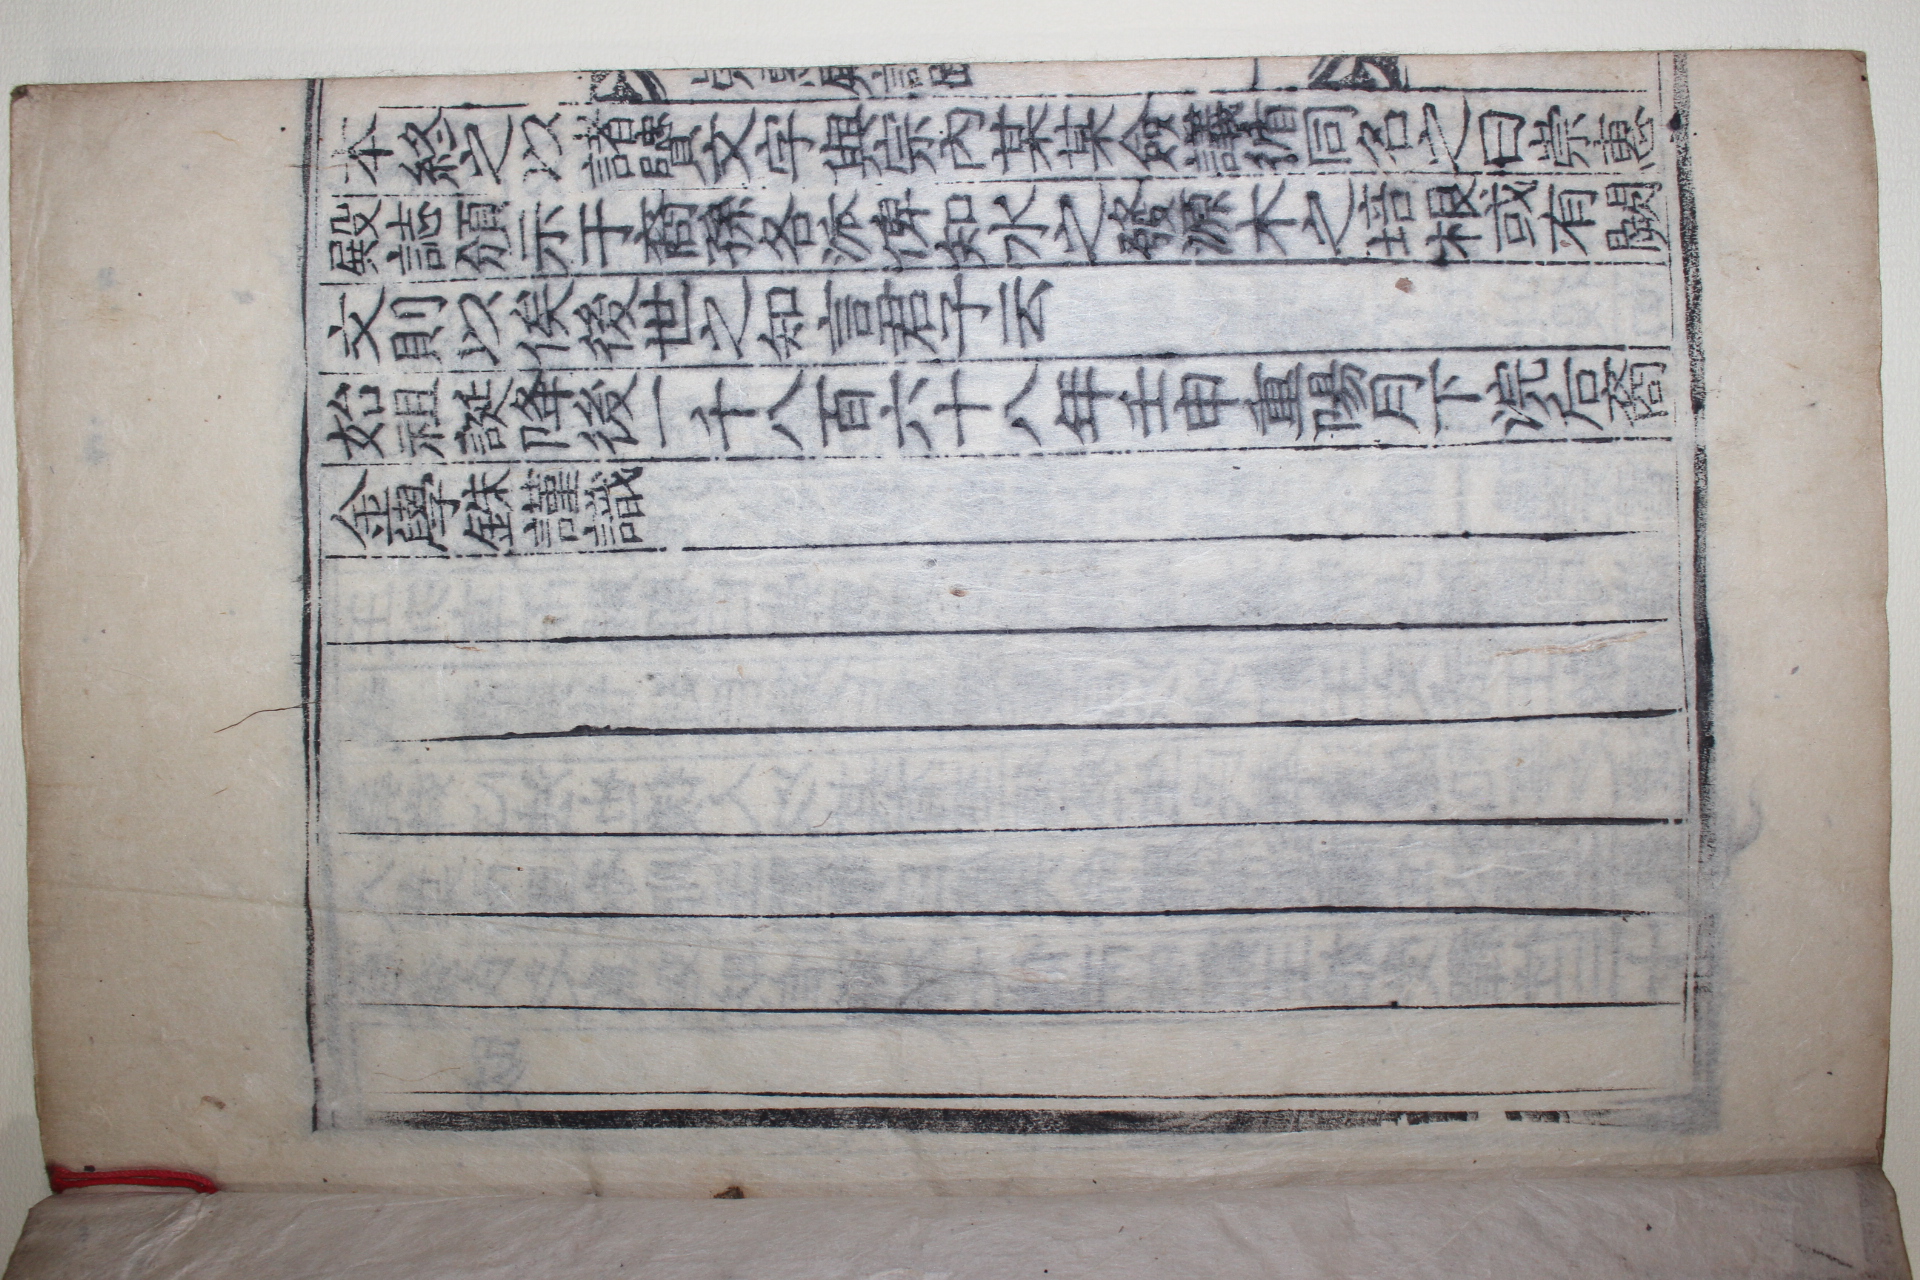 本終之以諸賢文字與宗內某某僉議循同名之曰崇惠
殿誌頒示于裔孫各派俾知水之發源木之培根或有闕
文則以俟後世之知言君子云
始祖誕降後一千八百六十八年壬申重陽月下浣后裔
金學銖謹識